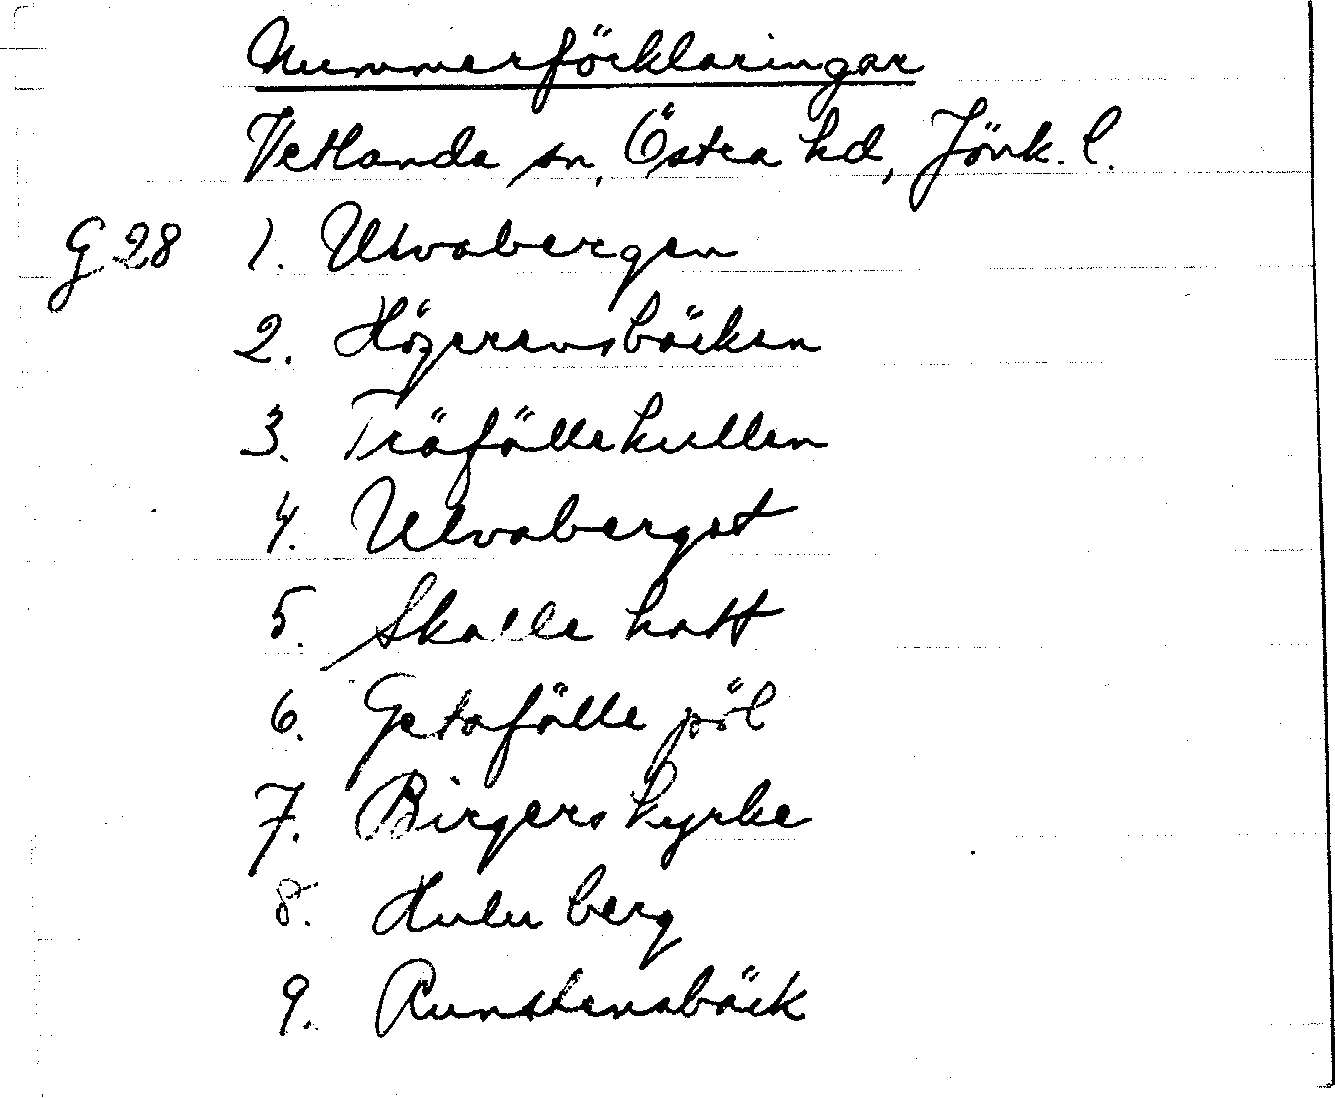 Nummerförklaringar
Vetlanda sn, Östra hd, Jönk. l.
G 28 1. Ulvabergen
2. Högerensbäcken
3. Träfällekullen
4. Ulvaberget
5. Skalle hatt
6. Getafälle pöl
7. Birgers kyrke
8. Hulu berg
9. Runstensbäck